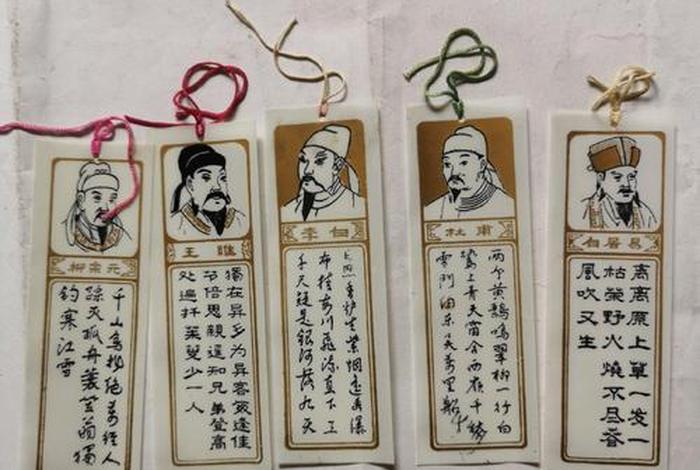 柳宗元
千山鸟飞绝万径人
踪灭孤舟蓑笠翁獨
钓寒江雪
王維
獨在异乡为异客每逢佳
节倍思親遥知兄弟登高
处遍扦茱萸少一人
李白
日照香炉生紫烟遥看瀑
布挂前川飛流直下三
千尺疑是銀河落九天
杜甫
两个黄鹂鳴翠柳一行白
鹭上青天窗含西岭千秋
雪門泊东吴万里船
白居易
离离原上草一岁一
枯荣野火燒不尽春
風吹又生